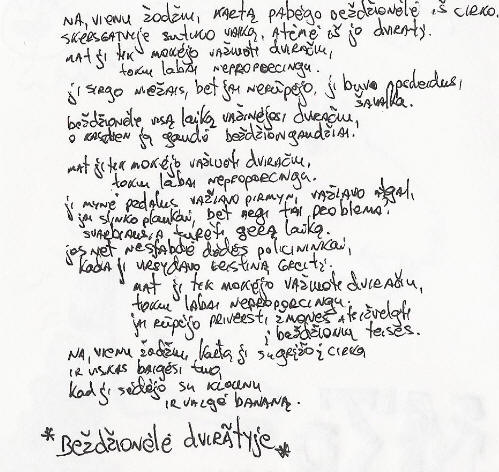 NA, VIENU ŽODŽIU, KARTĄ PABĖGO BEŽDŽIONĖLĖ IŠ CIRKO.
SKERSGATVYJE SUTIKO VAIKĄ, ATĖMĖ IŠ JO DVIRATĮ.
MAT JI TIK MOKĖJO VAŽIUOTI DVIRAČIU,
TOKIU LABAI NEPROPORCINGU.
JI SIRGO NIEŽAIS, BET JAI NERŪPĖJO, JI BUVO PRDEIDUS,
ŠAVALKA.
BEŽDŽIONĖLĖ VISĄ LAIKĄ VAŽINĖJOSI DVIRAČIU,
O KASDIEN JĄ GAUDĖ BEŽDŽIONGAUDŽIAI.
MAT JI TIK MOKĖJO VAŽIUOTI DVIRAČIU,
TOKIU LABAI NEPROPORCINGU.
JI MYNĖ PEDALUS VAŽIAVO PIRMYN, VAŽIAVO ATGAL,
JAI SLINKO PLAUKAI, BET ARGI TAI PROBLEMA?
SVARBIAUSIA TURĖTI GERĄ LAIKĄ.
JOS NET NESTABDĖ DĖDĖS POLICININKAI,
KADA JI VIRŠYDAVO LEISTINĄ GREITĮ.
MAT JI TIK MOKĖJO VAŽIUOTI DVIRAČIU,
TOKIU LABAI NEPROPORCINGU,
JAI RŪPĖJO PRIVERSTI ŽMONES ATSIŽVELGTI
Į BEŽDŽIONIŲ TEISES.
NA, VIENU ŽODŽIU, KARTĄ JI SUGRĮŽO Į CIRKĄ
IR VISKAS BAIGĖSI TUO,
KAD JI SĖDĖJO SU KLOUNU
IR VALGĖ BANANĄ.
*BEŽDŽIONĖLĖ DVIRATYJE*